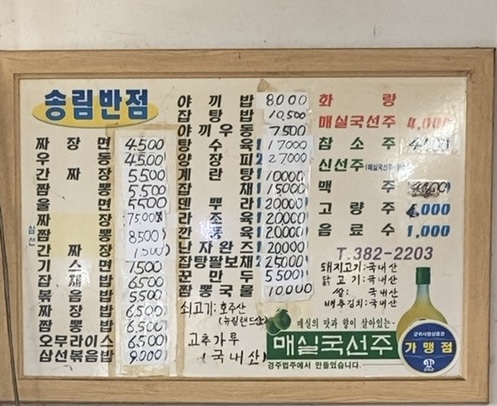 송림반점
짜장면 4500
우동 4500
간짜장 5500
짬뽕 5500
울면 5500
삼선
짜장 7500
짬뽕 8500
간짜장
기스면 7500
잡채밥 6500
볶음밥 5500
짜장밥 6500
짬뽕밥 6500
오무라이스 6500
삼선볶음밥 9000
야끼밥 8000
잡탕밥 10,500
야끼우동 7500
탕수육 17000
양장피 27000
계란탕 10000
잡채 15000
덴뿌라 20000
라조육 20000
깐풍육 20000
난자완즈 20000
잡탕팔보채 25000
군만두 5500
짬뽕국물 10000
쇠고기: 호주산
(뉴질랜드산)
고추가루
(국내산)
화랑
매실국선주 4,000
찹쌀주
신선주
맥주
고량주
음료수
T.382-2203
돼지고기:국내산
닭고기:국내산
쌀:국내산
배추김치:국내산
매실의 맛과 향이 살아있는~
매실국선주
경주법주에서 만들었습니다.
가맹점